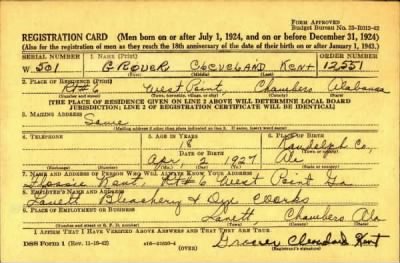 FORM APPROVED
Budget Bureau No. 33-R012-42
REGISTRATION CARD (Men born on or after July 1, 1924, and on or before December 31, 1924)
(Also for the registration of men as they reach the 18th anniversary of the date of their birth on or after January 1, 1943.)
SERIAL NUMBER 1. NAME (Print) ORDER NUMBER
W. 501 GROVER CLEVELAND KENT 12551
(First) (Middle) (Last)
2. PLACE OF RESIDENCE (Print)
Rt#6 West Point, Chambers Alabama
(Number and street) (Town, township, village, or city) (County) (State)
[THE PLACE OF RESIDENCE GIVEN ON LINE 2 ABOVE WILL DETERMINE LOCAL BOARD
JURISDICTION; LINE 2 OF REGISTRATION CERTIFICATE WILL BE IDENTICAL]
3. MAILING ADDRESS
Same
[Mailing address if other than place indicated on line 2. If same, insert word same]
4. TELEPHONE 5. AGE IN YEARS 6. PLACE OF BIRTH
18 Randolph Co,
DATE OF BIRTH
Apr. 2 1927 Ala
(Exchange) (Number) (Mo.) (Day) (Yr.) (State or country)
7. NAME AND ADDRESS OF PERSON WHO WILL ALWAYS KNOW YOUR ADDRESS
Kent, Rt#6 West Point Ga
8. EMPLOYER'S NAME AND ADDRESS
Lanett Bleachery & Dye Works
9. PLACE OF EMPLOYMENT OR BUSINESS
Lanett Chambers Ala
(Number and street or R. F. D. number) (Town) (County) (State)
I AFFIRM THAT I HAVE VERIFIED ABOVE ANSWERS AND THAT THEY ARE TRUE.
DSS Form 1 (Rev. 11-16-42) (OVER) Grover Cleveland Kent
(Registrant's signature)